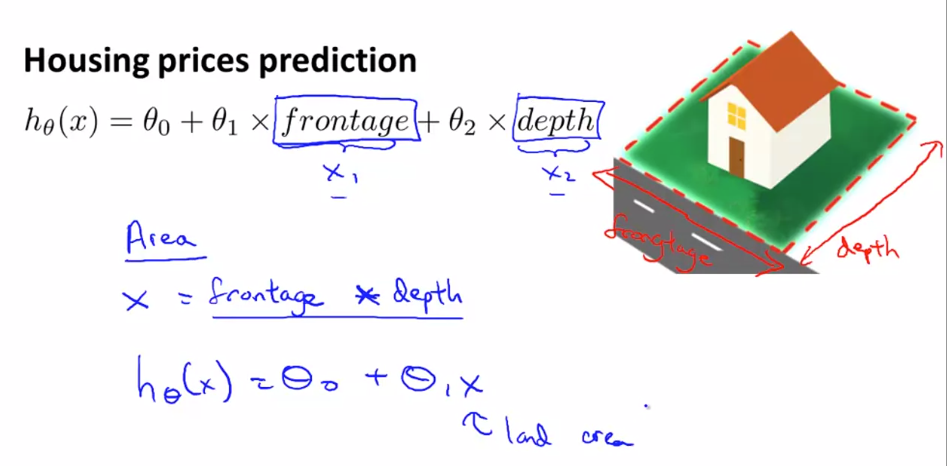 Housing prices prediction
hθ(x) = θ0 + θ1 × frontage + θ2 × depth
x1
x2
frongtage
depth
Area
x = frontage * depth
hθ(x) = θ0 + θ1 x
land area